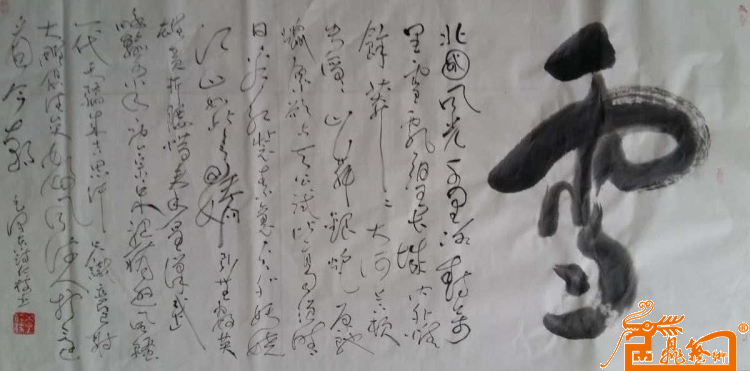 雪
北國风光千里冰封万
里雪飘望长城内外惟
餘莽莽大河上下顿
失滔滔山舞銀蛇原驰
蜡象欲与天公试比高须晴
日看红装素裹分外妖娆
江山如此多娇引无数英
雄竞折腰惜秦皇漢武
略输文采唐宗宋祖稍逊风骚
一代天骄成吉思汗只识弯弓射
大雕俱往矣数风流人物还
看今朝